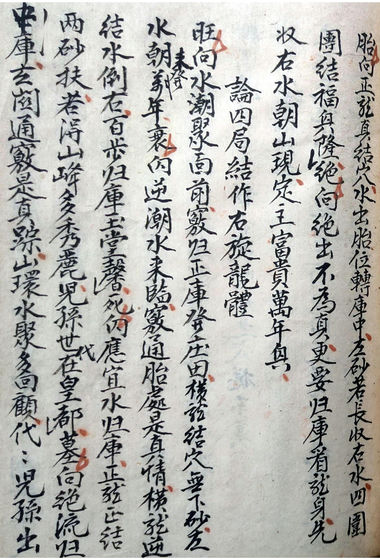 胎向正龍身結穴水出胎位轉庫中左砂若長收右水四圍
團結福與隆絕向絕出不為真更要归庫看龍身先
收右水朝山現定主富貴萬年興
論四局結作右旋龍體
旺向水潮聚面前竅归正庫發庄田橫龍結穴無下砂左
水朝来得萬年衰內逆潮水来臨竅通胎處是真情橫龍逆
結水倒右百步归庫玉堂馨死內應宜水归庫正龍正結
兩砂扶若得山峰多秀麗児孫世代在皇都墓向絕流归
中庫玄關通竅是真踪山環水聚多回顧代々児孫出